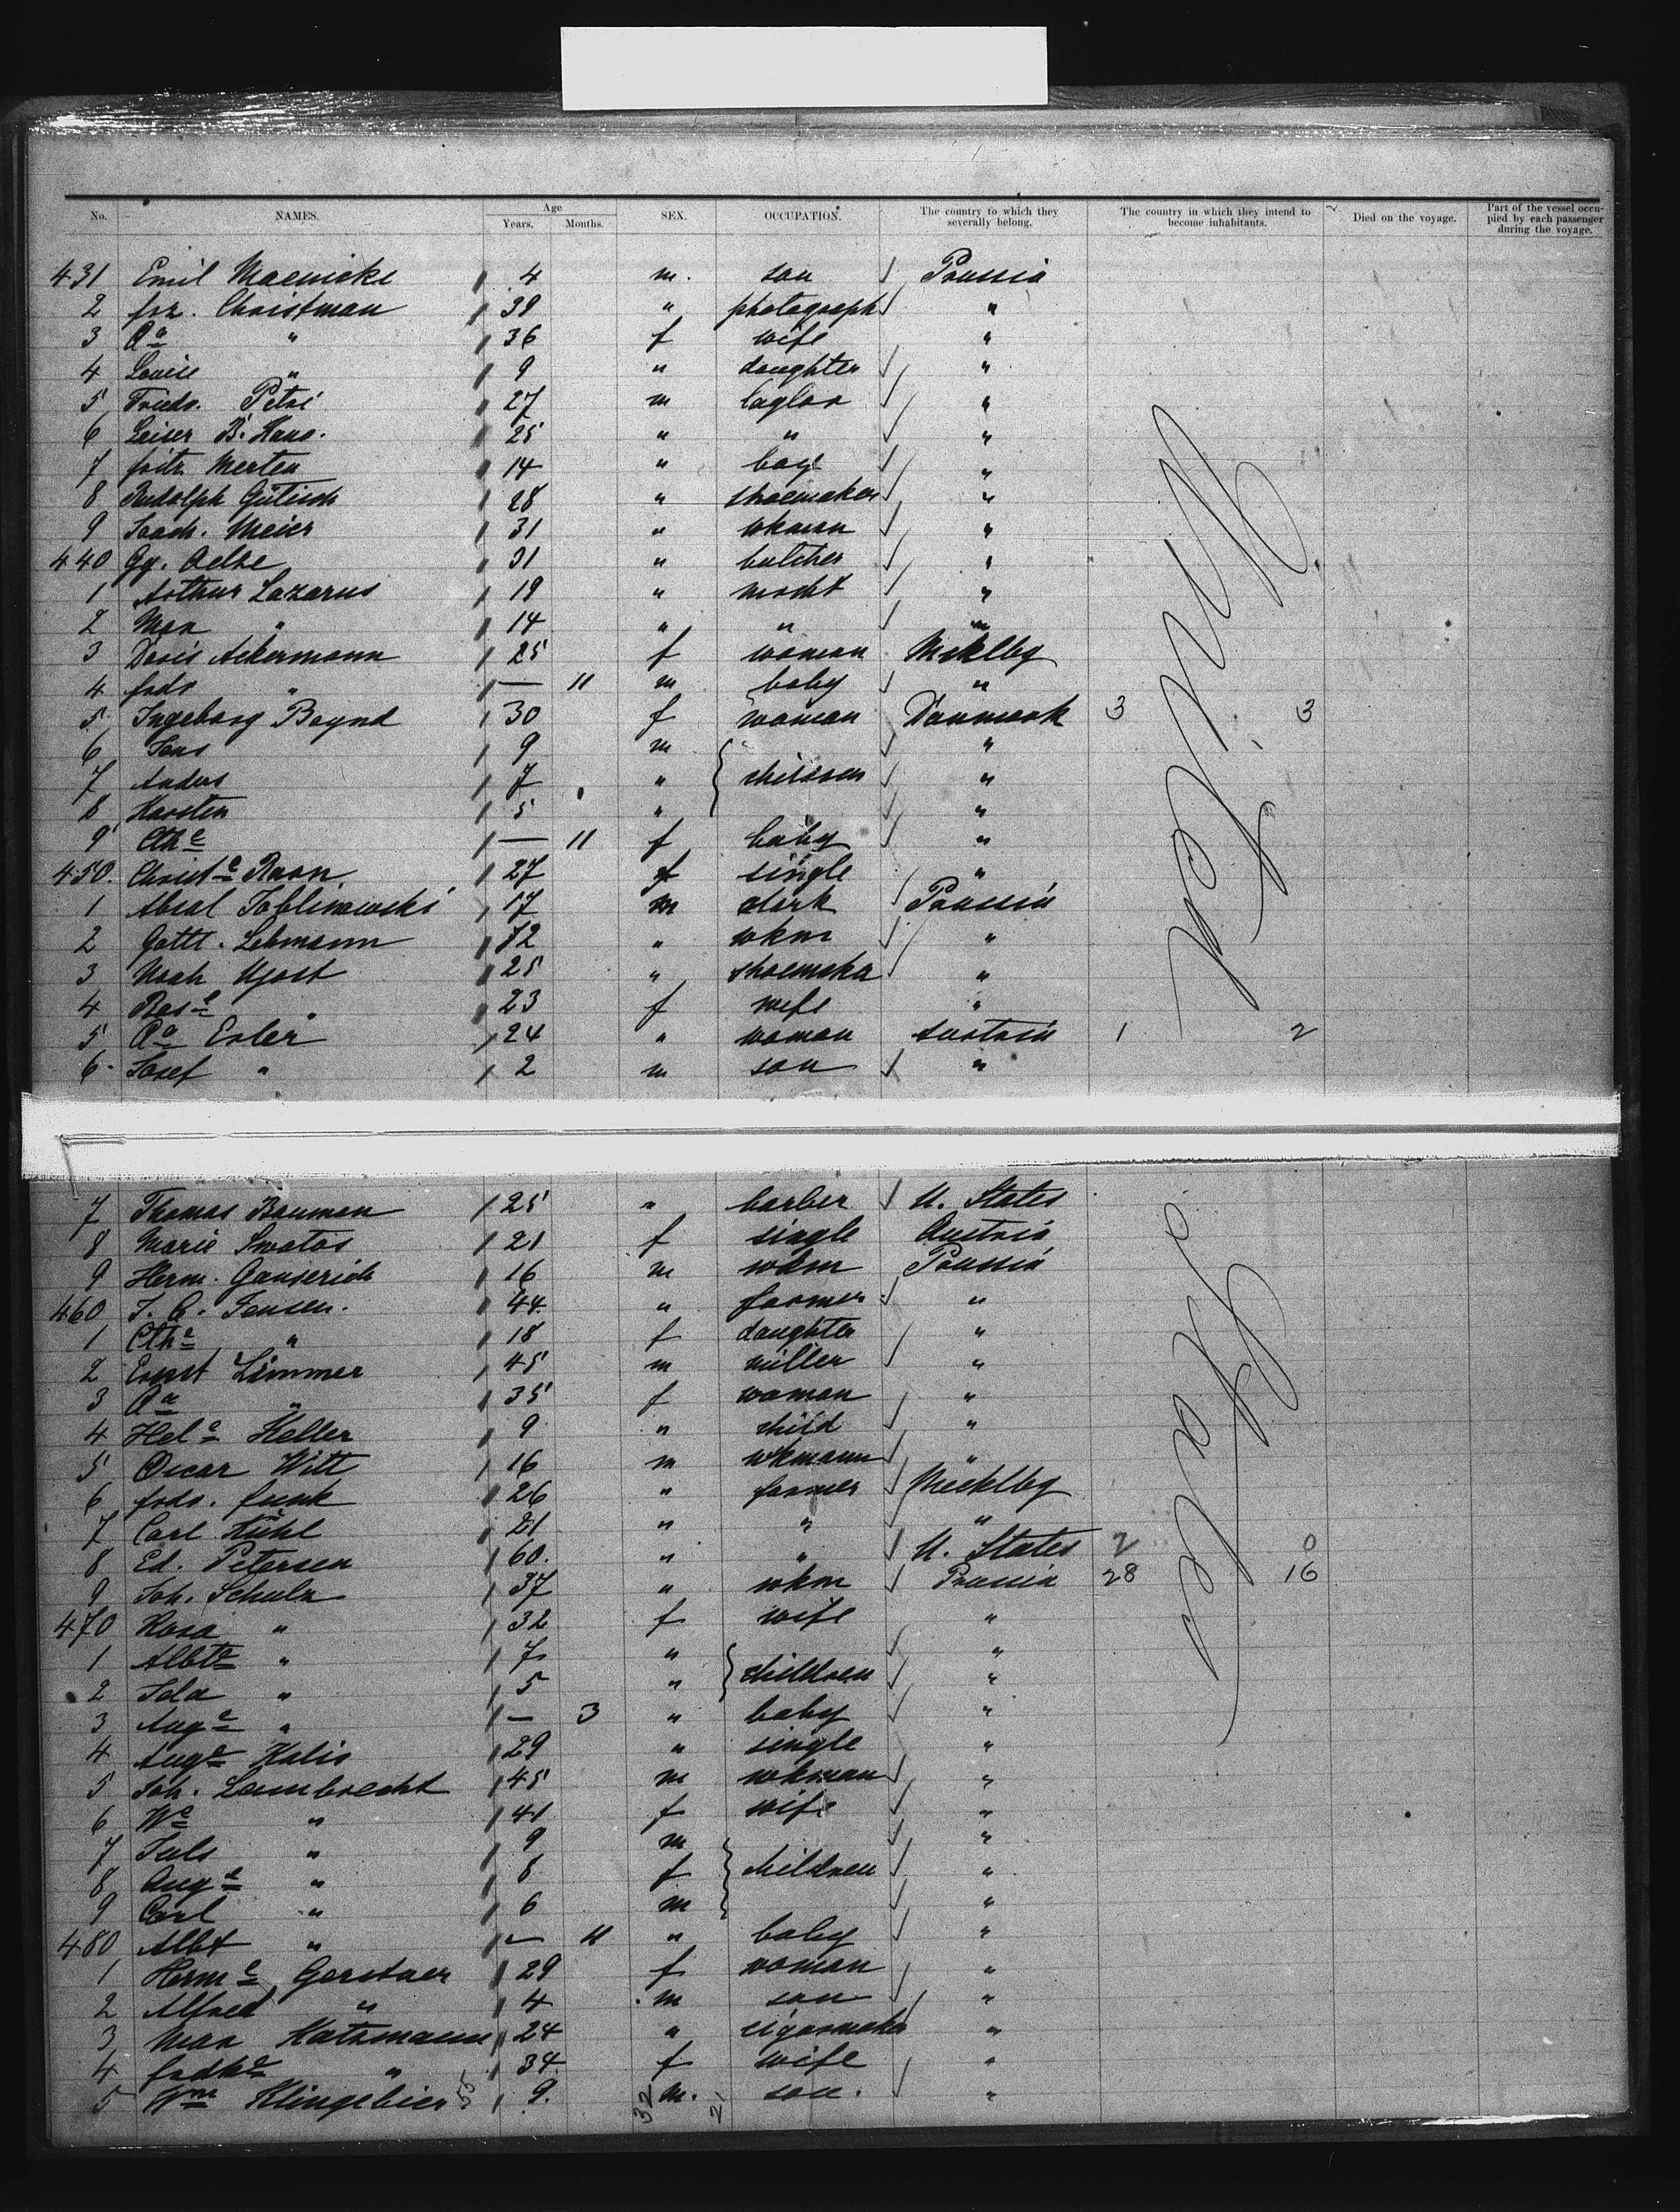 No. NAMES. Age Years. Months. SEX. OCCUPATION. The country to which they severally belong. The country in which they intend to become inhabitants. Died on the voyage. Part of the vessel occupied by each passenger during the voyage.
431 Emil Maenicke 4 m. son Prussia
2 frz. Christman 39 " photograph "
3 Aa " 36 f wife "
4 Louise " 9 " daughter "
5 Friedr. Petri 27 m taylor "
6 Leiser B. Hano. 25 " " "
7 fritz Merten 14 " boy "
8 Rudolph Gütisch 28 " shoemaker "
9 Joach. Meier 31 " wkman "
440 Gg. Oelze 31 " butcher "
1 Arthur Lazarus 19 " mscht "
2 Max " 14 " " "
3 Doris Ackermann 25 f woman Meklbg
4 frdr " — 11 m baby "
5 Ingeborg Beynd 30 f woman Danmark 3 3
6 Jens 9 m "
7 Anders 7 " children "
8 Karsten 5 " "
9 Cthe — 11 f baby "
450. Christe Raon 27 f single "
1 Abral Joblinowski 17 m clerk Prussia
2 Gottl. Lehmann 72 " wkm "
3 Noah Ujost 25 " shoemaker "
4 Rose " 23 f wife "
5 Aa Erler 24 " woman Austria 1 2
6. Josef " 2 m son "
7 Thomas Bauman 25 " barber U. States
8 Marie Swatos 21 f single Austria
9 Herm. Gauserich 16 m wkm Prussia
460 J. C. Jensen. 44 " farmer "
1 Cthe " 18 f daughter "
2 Ernst Zimmer 45 m miller "
3 Aa " 35 f woman "
4 Hele Keller 9 " child "
5 Oscar Witt 16 m wkmann "
6 frdr. funk 26 " farmer Mecklbg
7 Carl Kühl 21 " " "
8 Ed. Petersen 60. " " U. States 2 0
9 Joh. Schulz 37 " wkm Prussia 28 16
470 Rosa " 32 f wife "
1 Albte " 7 " "
2 Ida " 5 " children "
3 Auge " — 3 " baby "
4 Auge Kalis 29 " single "
5 Joh. Lambrecht 45 m wkman "
6 We " 41 f wife "
7 Juls " 9 m "
8 Auge " 8 f children "
9 Carl " 6 m "
480 Albt " — 11 " baby "
1 Herme Gerstner 29 f woman "
2 Alfred " 4 m son "
3 Max Katzmann 24 " cigarmaker "
4 frdke " 34 f wife "
5 Wm Klingebier 9. m. son. "
55 32 21